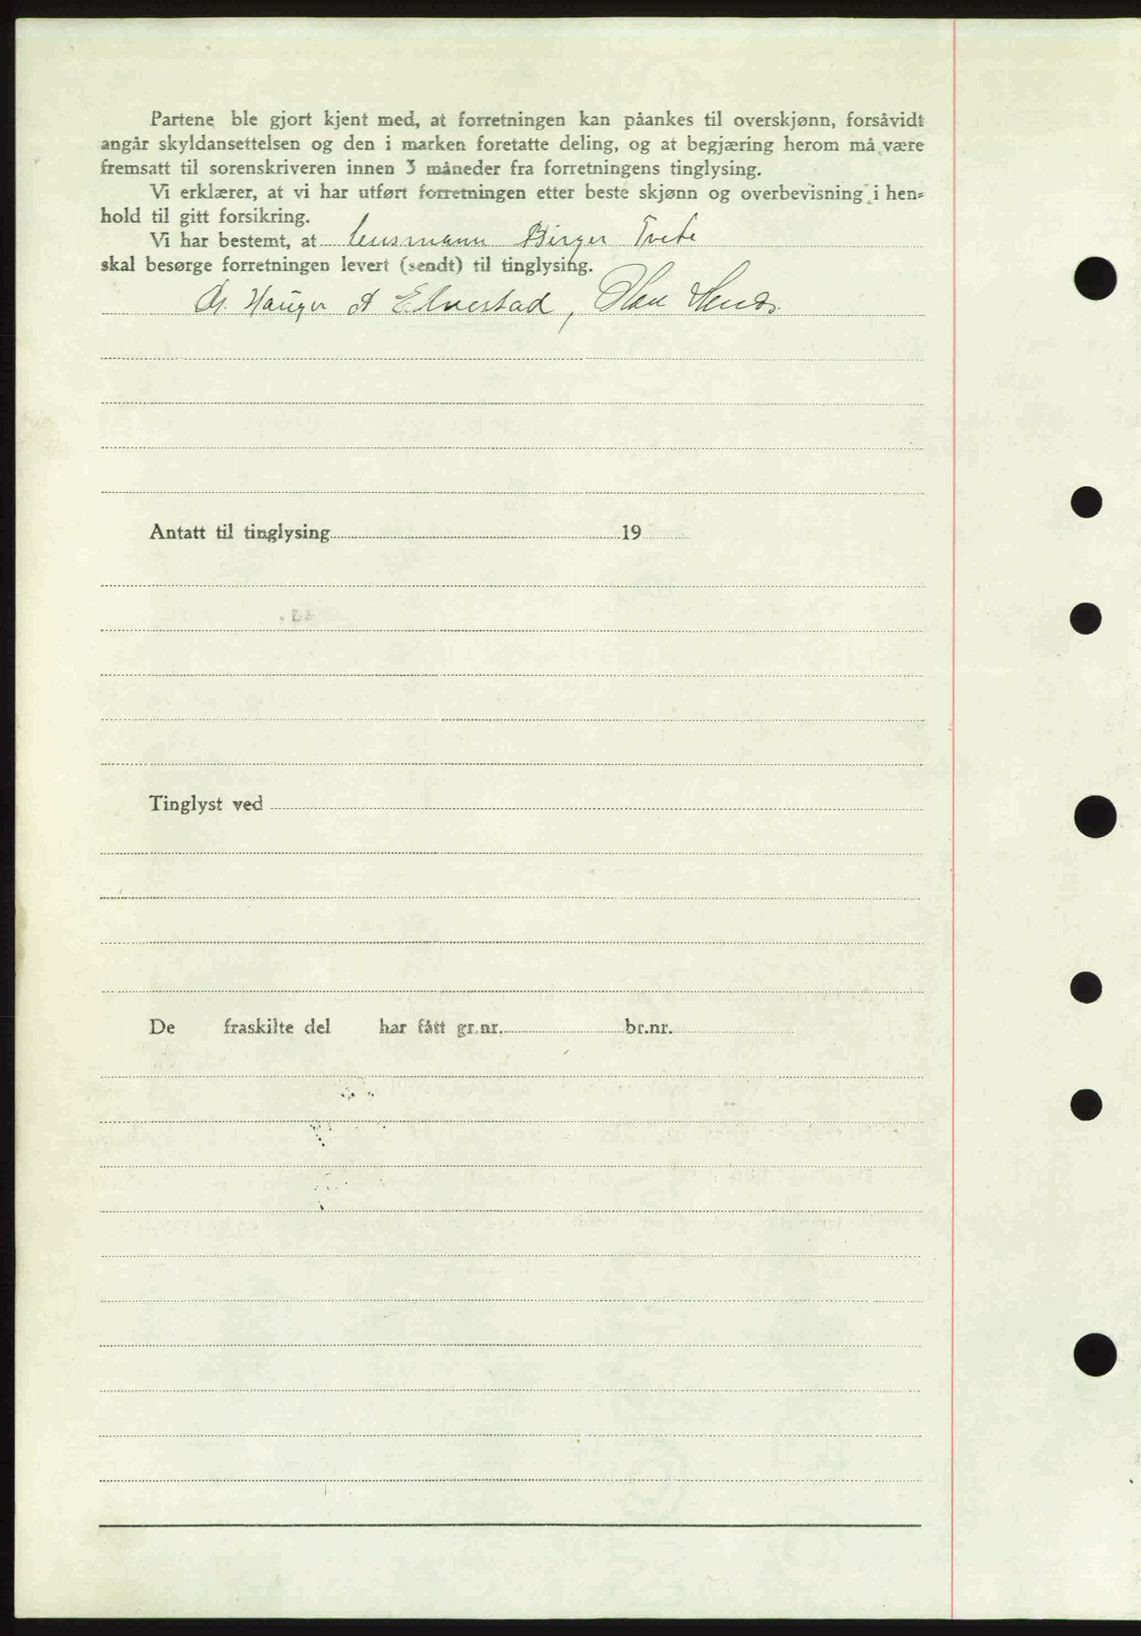 Partene ble gjort kjent med, at forretningen kan påankes til overskjønn, forsåvidt
angår skyldansettelsen og den i marken foretatte deling, og at begjæring herom må være
fremsatt til sorenskriveren innen 3 måneder fra forretningens tinglysing.
Vi erklærer, at vi har utført forretningen etter beste skjønn og overbevisning i hen-
hold til gitt forsikring.
Vi har bestemt, at lensmann Birger Tvete
skal besørge forretningen levert (sendt) til tinglysing.
Hauger A Elvestad,
Antatt til tinglysing 19
Tinglyst ved
De fraskilte del har fått gr.nr. br.nr.